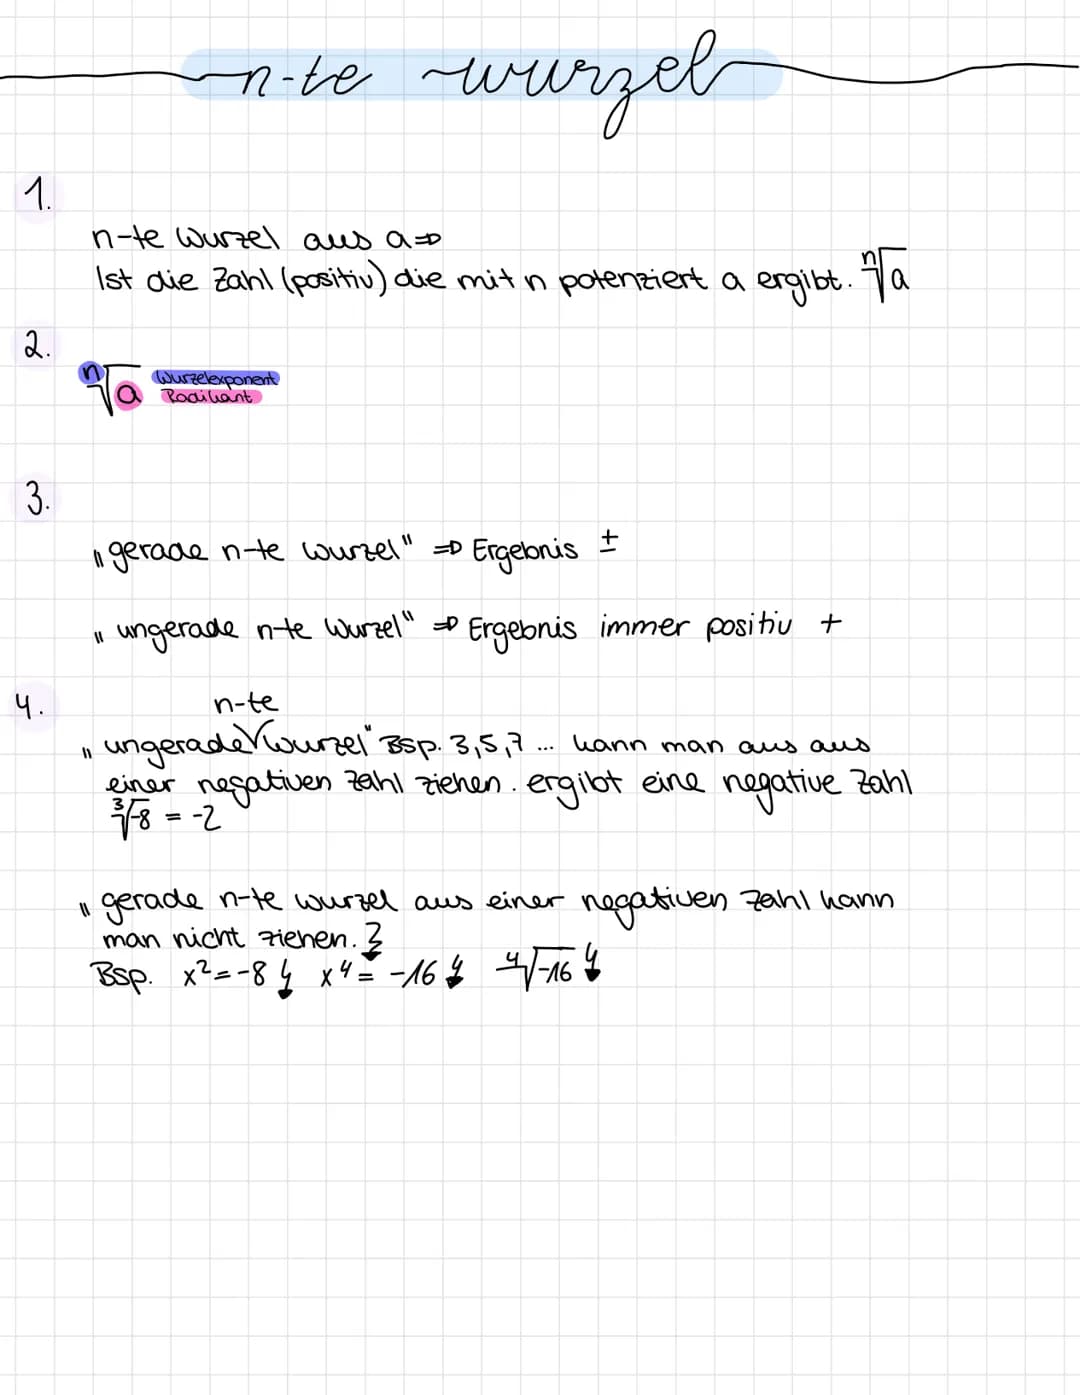 n-te wurzel
1.
n-te Wurzel aus a ⇒
Ist die Zahl (positiv) die mit n potenziert a ergibt. ⁿ√a
2.
ⁿ√a Wurzelexponent
Radikant
3.
„gerade n-te Wurzel" ⇒ Ergebnis ±
„ungerade n-te Wurzel" ⇒ Ergebnis immer positiv +
4.
n-te
„ungerade √ Wurzel" Bsp. 3,5,7 ... kann man aus aus
einer negativen Zahl ziehen. ergibt eine negative Zahl
³√-8 = -2
„gerade n-te Wurzel aus einer negativen Zahl kann
man nicht ziehen.
Bsp. x² = -8 ↯ x⁴ = -16 ↯ ⁴√-16 ↯